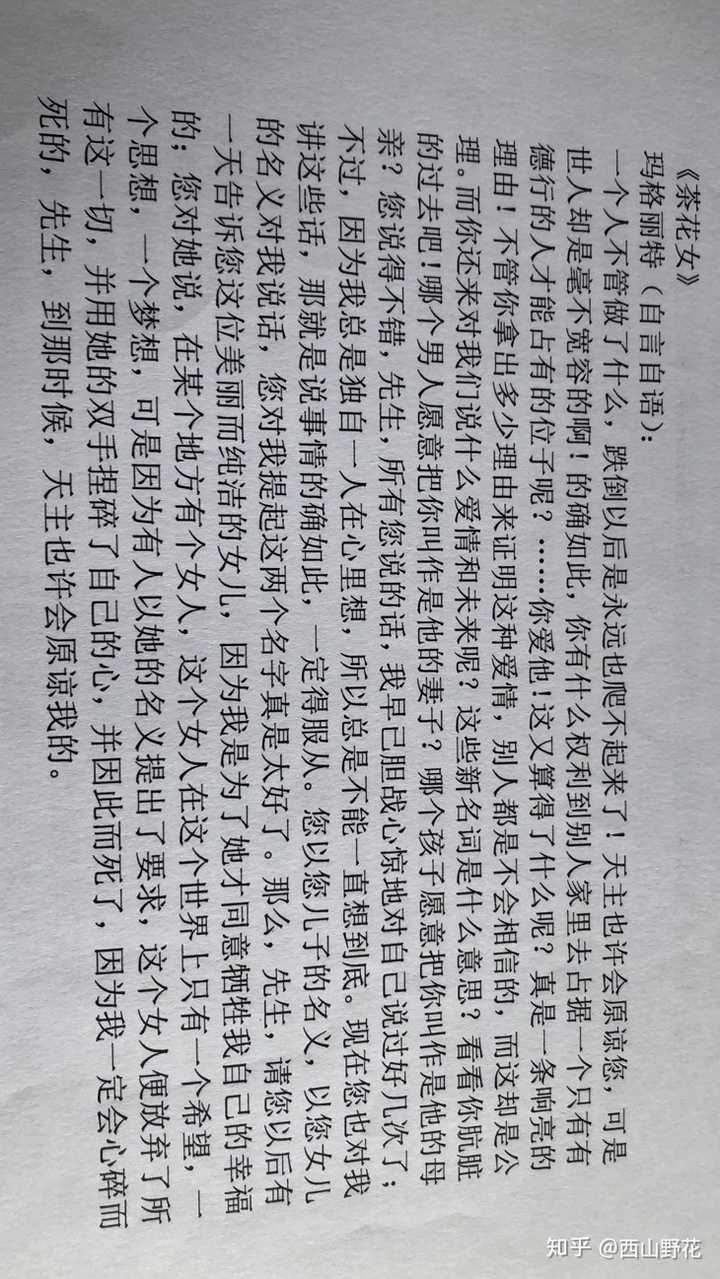 《茶花女》
玛格丽特（自言自语）：
一个人不管做了什么，跌倒以后是永远也爬不起来了！天主也许会原谅您，可是
世人却是毫不宽容的啊！的确如此，你有什么权利到别人家里去占据一个只有有
德行的人才能占有的位子呢？……你爱他！这又算得了什么呢？真是一条响亮的
理由！不管你拿出多少理由来证明这种爱情，别人都是不会相信的，而这却是公
理。而你还来对我们说什么爱情和未来呢？这些新名词是什么意思？看看你肮脏
的过去吧！哪个男人愿意把你叫作是他的妻子？哪个孩子愿意把你叫作是他的母
亲？您说得不错，先生，所有您说的话，我早已胆战心惊地对自己说过好几次了；
不过，因为我总是独自一人在心里想，所以总是不能一直想到底。现在您也对我
讲这些话，那就是说事情的确如此，一定得服从。您以您儿子的名义，以您女儿
的名义对我说话，您对我提起这两个名字真是太好了。那么，先生，请您以后有
一天告诉您这位美丽而纯洁的女儿，因为我是为了她才同意牺牲我自己的幸福
的；您对她说，在某个地方有个女人，这个女人在这个世界上只有一个希望，一
个思想，一个梦想，可是因为有人以她的名义提出了要求，这个女人便放弃了所
有这一切，并用她的双手捏碎了自己的心，并因此而死了，因为我一定会心碎而
死的，先生，到那时候，天主也许会原谅我的。
知乎 @西山野花